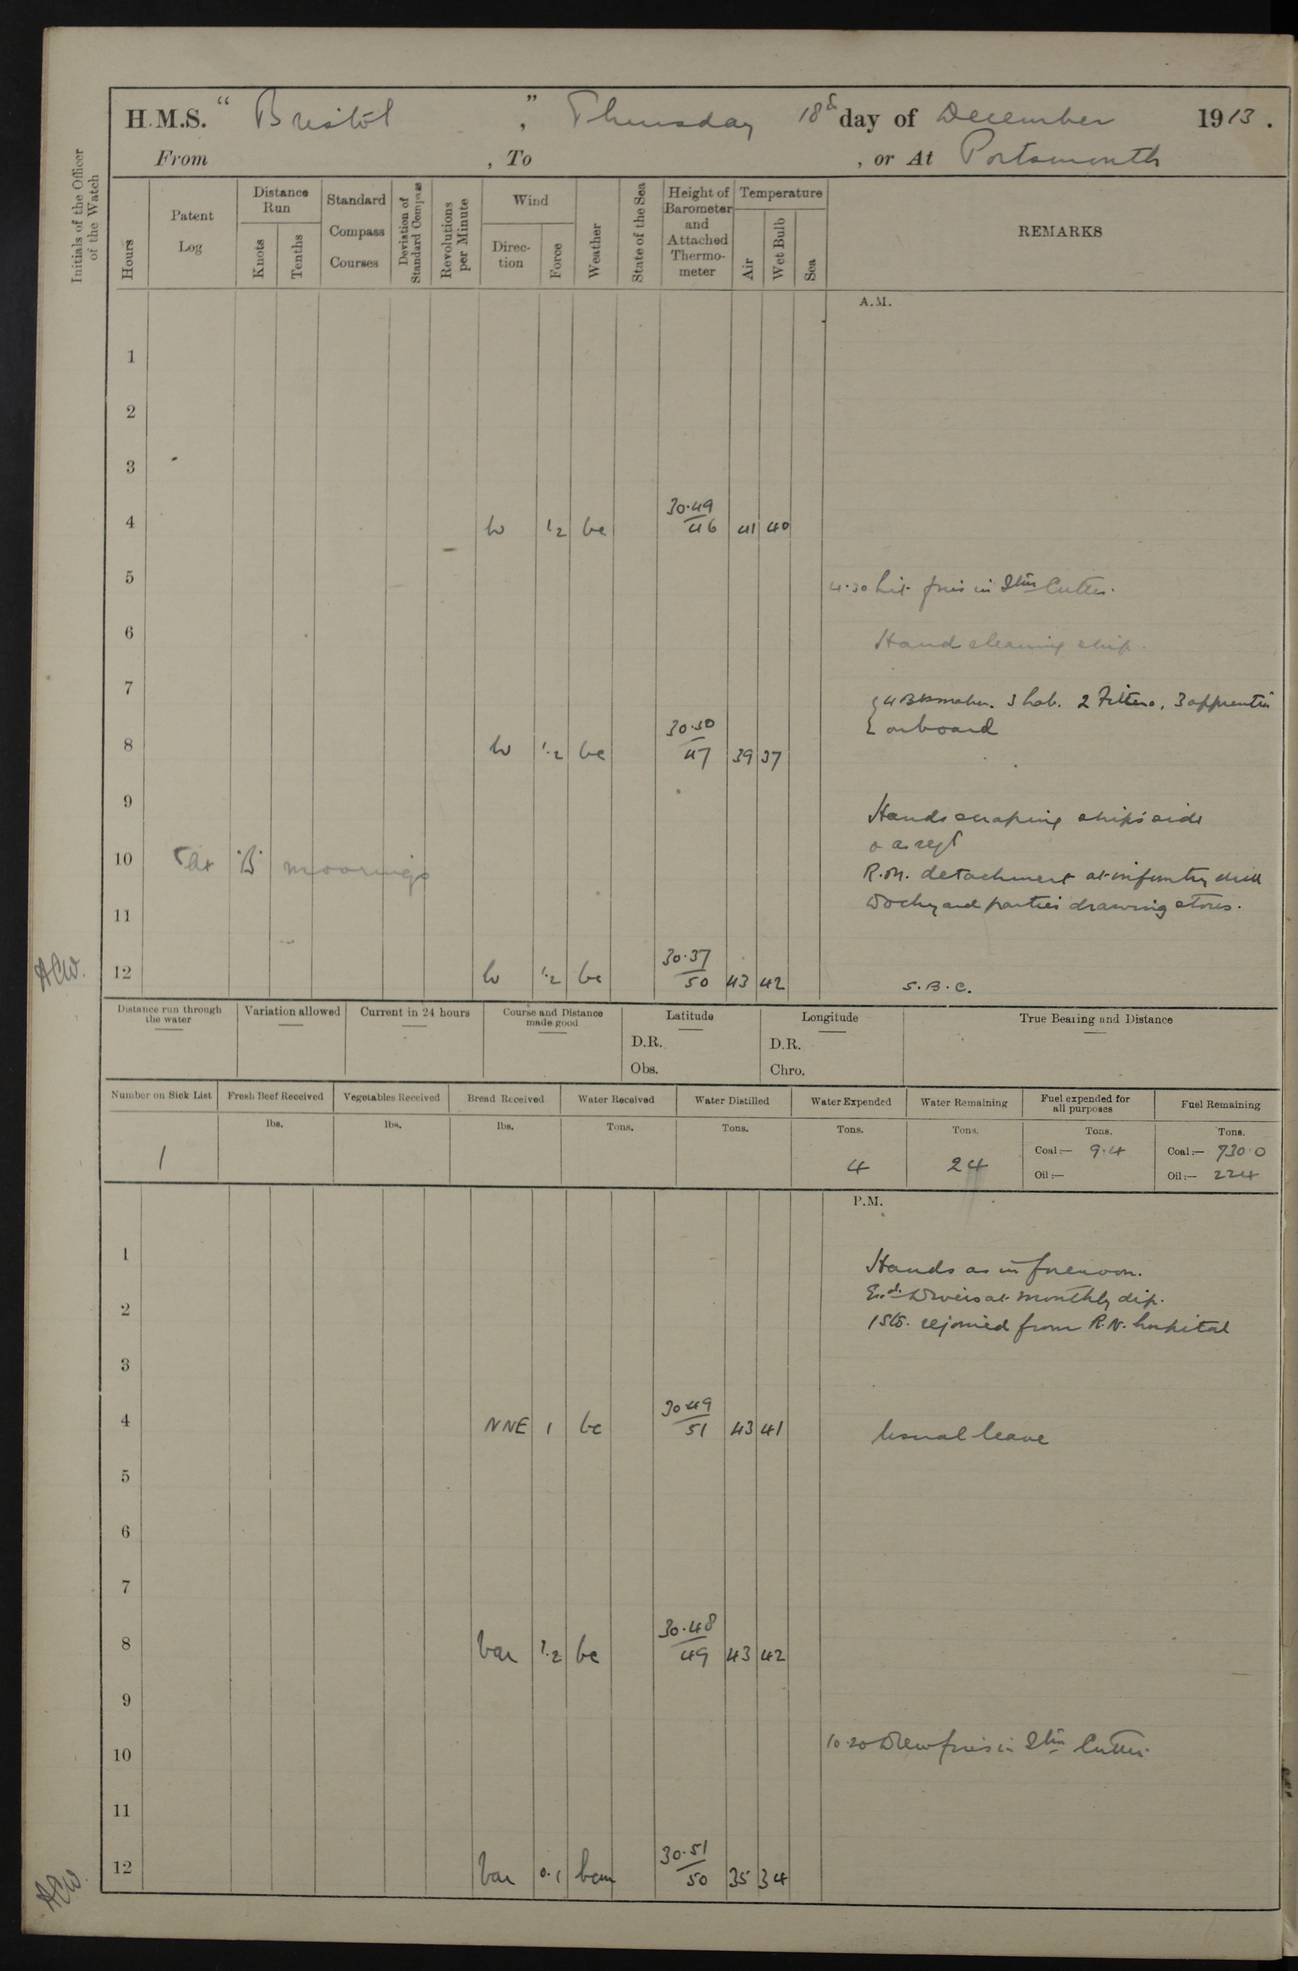 H.M.S. " Bristol " , Thursday 18th day of December 1913.
From , To , or At Portsmouth
Initials of the Officer of the Watch
Hours
Patent Log
Distance Run
Knots
Tenths
Standard Compass Courses
Deviation of Standard Compass
Revolutions per Minute
Wind
Direc-tion
Force
Weather
State of the Sea
Height of Barometer and Attached Thermo-meter
Temperature
Air
Wet Bulb
Sea
REMARKS
A.M.
1
2
3
4 W 1.2 bc 30.49/46 41 40
5
4.30 Lit fires in Stm Cutter.
6
Hands cleaning ship.
7
3 Lab. 2 Fitters, 3 apprentices
onboard
8 W 1.2 bc 30.50/47 39 37
9
Hands scraping ship's side
& as reqd
10 At 'B' moorings
R.M. detachment at infantry drill
Dockyard parties drawing stores.
11
ACW. 12 W 1.2 bc 30.37/50 43 42 S.B.C.
Distance run through the water
Variation allowed
Current in 24 hours
Course and Distance made good
Latitude
D.R.
Obs.
Longitude
D.R.
Chro.
True Bearing and Distance
Number on Sick List
Fresh Beef Received
Vegetables Received
Bread Received
Water Received
Water Distilled
Water Expended
Water Remaining
Fuel expended for all purposes
Fuel Remaining
lbs. lbs. lbs. Tons. Tons. Tons. Tons. Tons. Tons.
1 4 24
Coal:— 9.4 Coal:— 730.0
Oil:— Oil:— 224
P.M.
1
Hands as in forenoon.
Divers at monthly dip.
2
1 Sto. rejoined from R.N. hospital
3
4 NNE 1 bc 30.49/51 43 41 Usual leave
5
6
7
8 Var 1.2 bc 30.48/49 43 42
9
10
10.20 Drew fires in Stm Cutter.
11
ACW. 12 Var 0.1 bcm 30.51/50 35 34